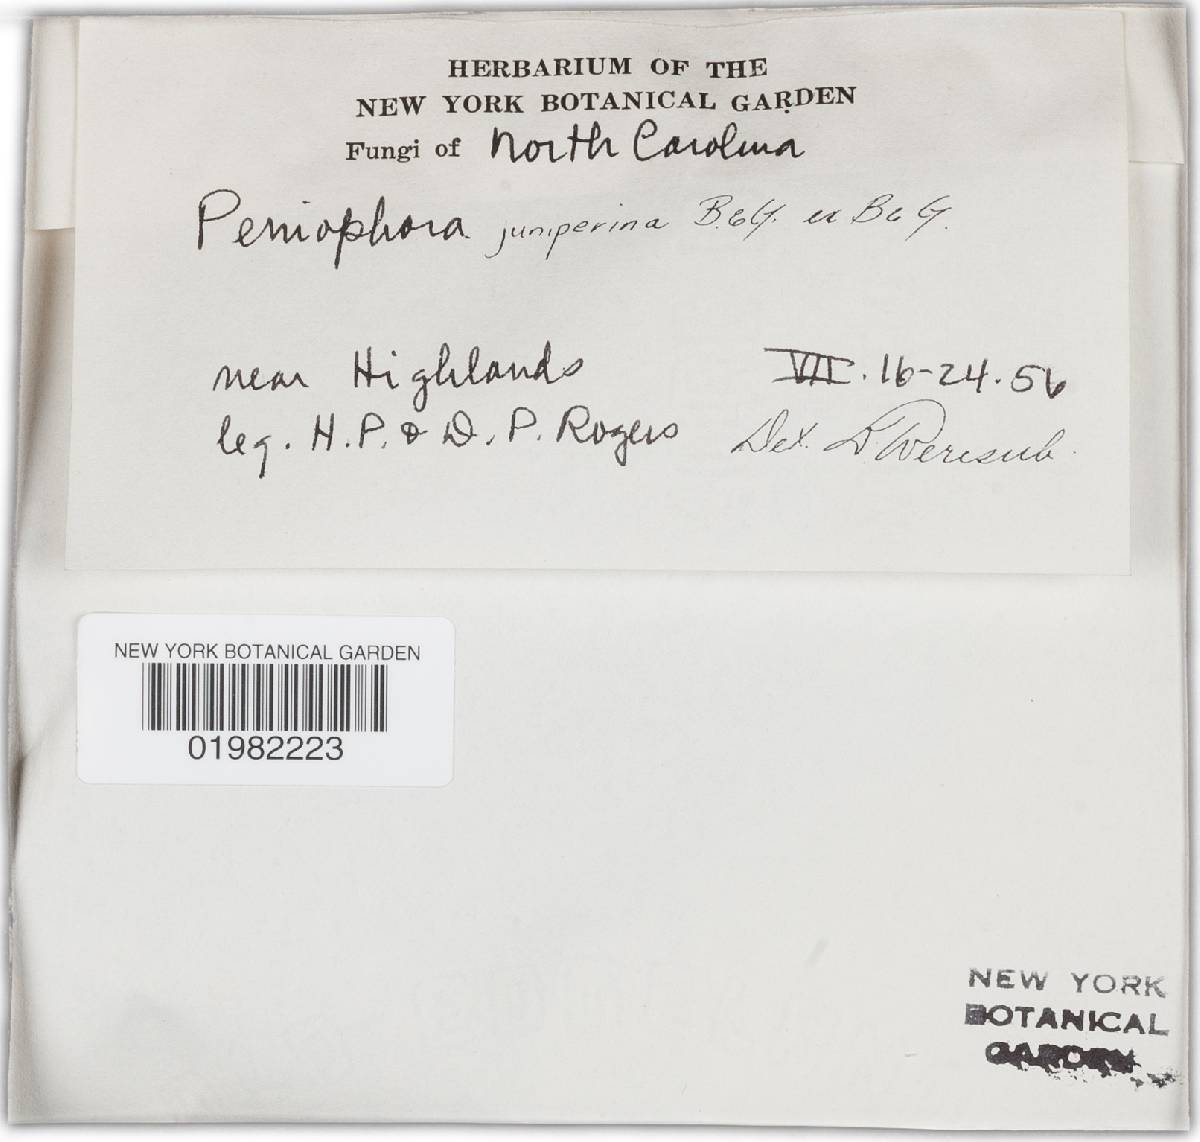 HERBARIUM OF THE
NEW YORK BOTANICAL GARDEN
Fungi of North Carolina
Peniophora juniperina B.&G. ex B&G.
near Highlands VII.16-24.56
leg. H.P. & D.P. Rogers Det. L. Weresub.
NEW YORK BOTANICAL GARDEN
01982223
NEW YORK
BOTANICAL
GARDEN